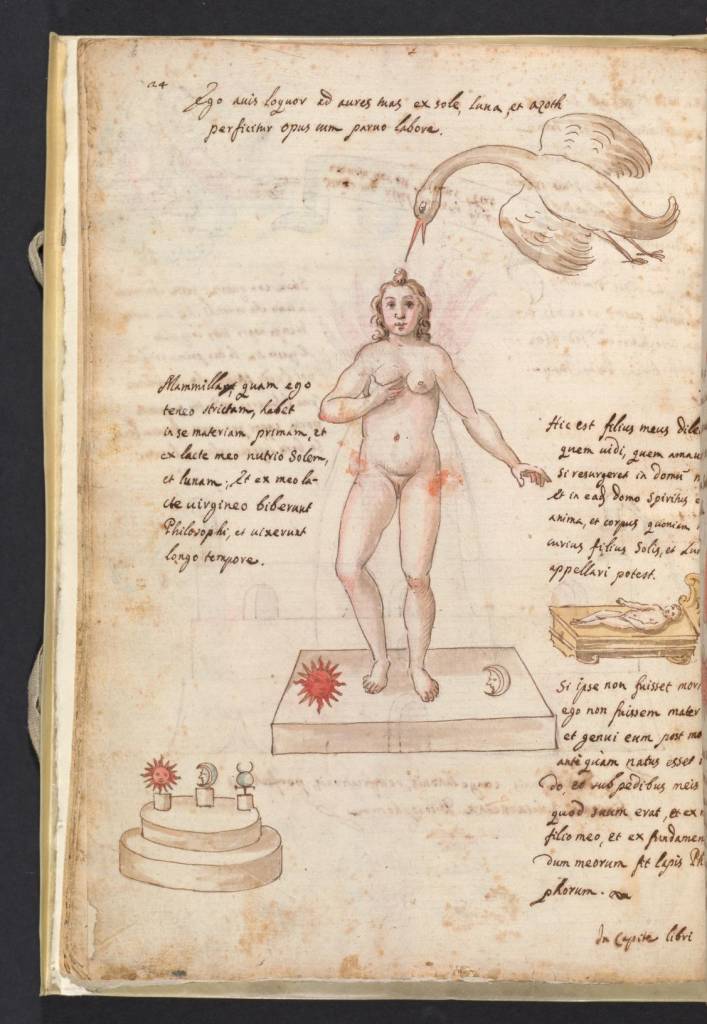 24
Ego avis loquor ad aures tuas ex sole, luna, et azoth
perficitur opus cum parvo labore.
Mammillam, quam ego
teneo strictam, habet
in se materiam primam, et
ex lacte meo nutrio Solem,
et lunam; Et ex meo la-
cte uirgineo biberunt
Philosophi, et uixerunt
longo tempore.
Hic est filius meus dile
quem uidi, quem amaui
Si resurgeret in domu
et in ead domo Spiritus
anima, et corpus quoniam
filius Solis, et Lu
appellari potest.
Si ipse non fuisset mor
ego non fuissem mater
et genui eum post mo
antequam natus esset
do, et sub pedibus meis
quod suum erat, et ex
filio meo, et ex fundamen
dum meorum fit lapis Ph
phorum.
In Capite libri